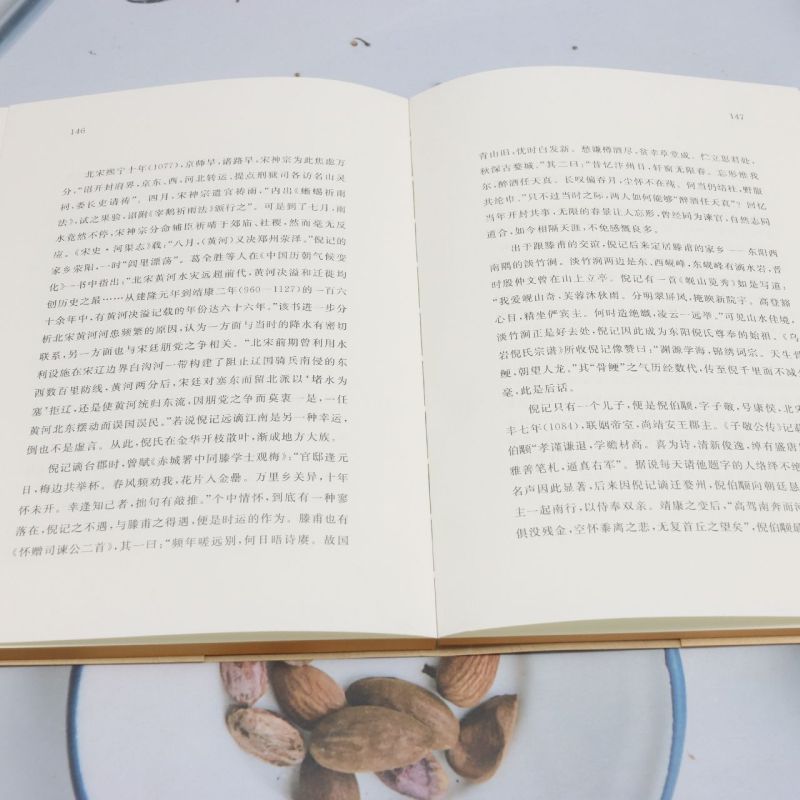 146
北宋熙宁十年(1077),京师旱,诸路旱,宋神宗为此焦虑万
分,“诏开封府界,京东、西、河北转运、提点刑狱司各访名山灵
祠,委长吏请祷”。四月,宋神宗遣官祷雨,“内出《蜥蜴祈雨
法》,试之果验,诏附《宰鹅祈雨法》颁行之”。可是到了七月,雨
水竟然不停,宋神宗分命辅臣祈晴于郊庙、社稷,然而毫无反
应。《宋史·河渠志》载,“八月,(黄河)又决郑州荥泽。”倪记的
家乡荥阳,一时“闾里漂荡”。葛全胜等人在《中国历朝气候变
化》一书中指出:“北宋黄河水灾远超前代,黄河决溢和迁徙均
创历史之最……从建隆元年到靖康二年(960—1127)的一百六
十余年中,有黄河决溢记载的年份达六十六年。”该书进一步分
析北宋黄河河患频繁的原因,认为一方面与当时的降水有密切
联系,另一方面也与宋廷朋党之争相关。“北宋前期曾利用水
利设施在宋辽边界白沟河一带构建了阻止辽国骑兵南侵的东
西数百里防线,黄河两分后,宋廷对塞东而留北派以‘堵水为
塞’拒辽,还是使黄河统归东流,因朋党之争而莫衷一是,一任
黄河北东摆动而误国误民。”若说倪记远谪江南是另一种幸运,
倒也不是虚言。从此,倪氏在金华开枝散叶,渐成地方大族。
倪记谪台郡时,曾赋《赤城署中同滕学士观梅》:“官邸逢元
日,梅边共举杯。春风频劝我,花片入金罍。万里乡关异,十年
怀未开。幸逢知己者,拙句有敲推。”个中情怀,到底有一种寥
落在,倪记之不遇,与滕甫之得遇,便是时运的作为。滕甫也有
《怀赠司谏公二首》,其一曰:“频年嗟远别,何日唔诗赓。故国
147
青山旧,忧时白发新。愁谦樽酒尽,贫幸草堂成。伫立思君处,
秋深古婺城。”其二曰:“昔忆汴州日,轩窗无限春。忘形惟我
尔,醉酒任天真。长叹偏吞月,尘怀不在莼。何当仍结社,野服
共纶巾。”只不过当时之际,两人如何能够“醉酒任天真”?回忆
当年开封共事,无限的春景让人忘形,曾经同为谏官,自然志同
道合,如今相隔天涯,不免感慨良多。
出于跟滕甫的交谊,倪记后来定居滕甫的家乡——东阳西
南隅的淡竹涧。淡竹涧两边是东、西岘峰,东岘峰有滴水岩,晋
时殷仲文曾在山上立亭。倪记有一首《岘山览秀》如是写道:
“我爱岘山奇,芙蓉沐秋雨。分明翠屏风,掩映新院宇。高登豁
心目,精坐俨宾主。何时造绝巘,凌云一远举。”可见山水佳境,
淡竹涧正是好去处,倪记因此成为东阳倪氏尊奉的始祖。《乌
岩倪氏宗谱》所收倪记像赞曰:“澜源学海,锦绣词宗。天生骨
鲠,朝望人龙。”其“骨鲠”之气历经数代,传至倪千里而不减分
毫,此是后话。
倪记只有一个儿子,便是倪伯顺,字子敬,号康侯,北宋
丰七年(1084),联姻帝室,尚靖安王郡主。《子敬公传》记载
倪伯顺“孝谨谦退,学赡材高。喜为诗,清新俊逸,绰有盛唐
雅善笔札,逼真右军”。据说每天请他题字的人络绎不绝
名声因此显著,后来因倪记谪迁婺州,倪伯顺向朝廷恳
主一起南行,以侍奉双亲。靖康之变后,“高驾南奔而河
俱没残金,空怀黍离之悲,无复首丘之望矣”,倪伯顺